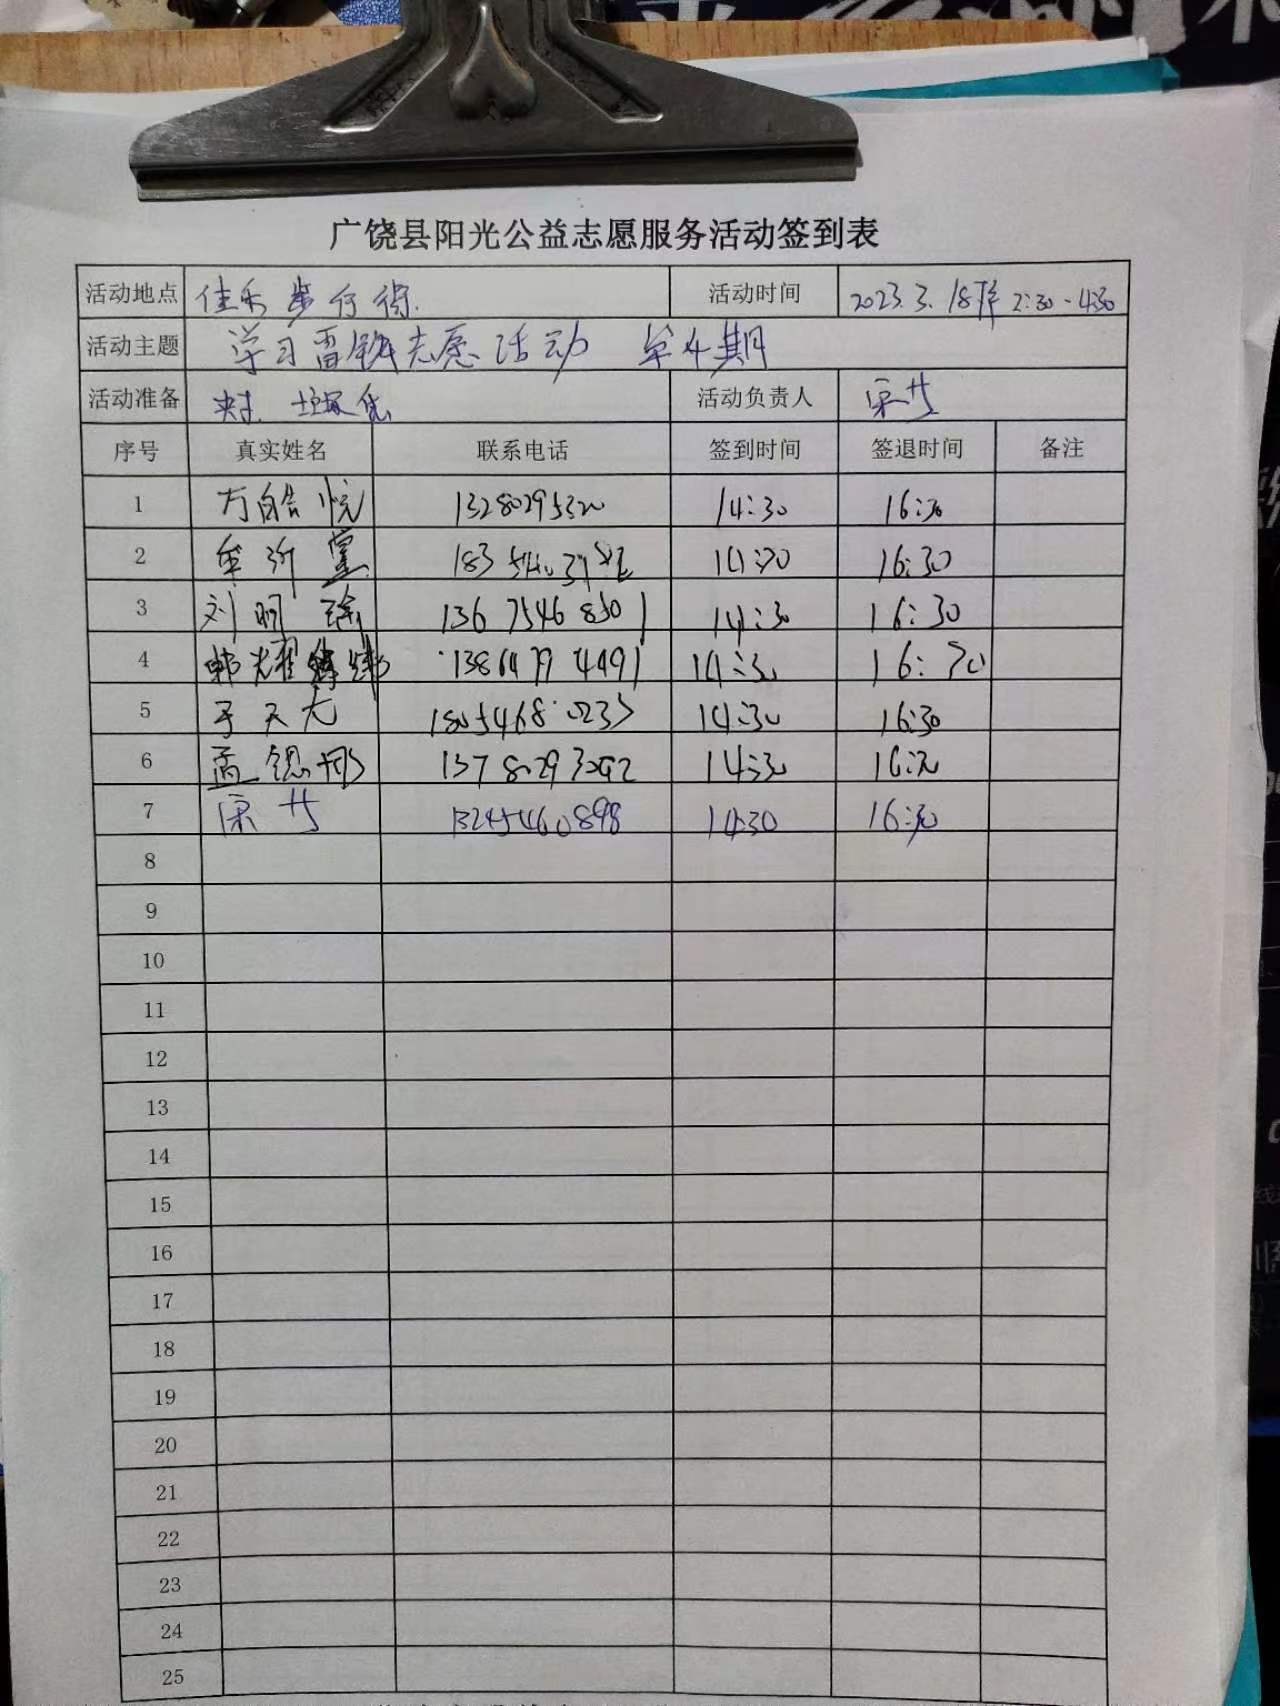 广饶县阳光公益志愿服务活动签到表
活动地点 佳乐步行街. 活动时间 2023.3.18下午2:30-4:30
活动主题 学习雷锋志愿活动 第4期
活动准备 活动负责人 宋廿
序号 真实姓名 联系电话 签到时间 签退时间 备注
1 方皓悦 13280295320 14:30 16:30
2 14:30 16:30
3 刘明 13675468501 14:30 16:30
4 韩耀 13864794491 14:30 16:30
5 于天尤 18054680233 14:30 16:30
6 孟 14:30 16:30
7 宋廿 13245460898 14:30 16:30
8
9
10
11
12
13
14
15
16
17
18
19
20
21
22
23
24
25